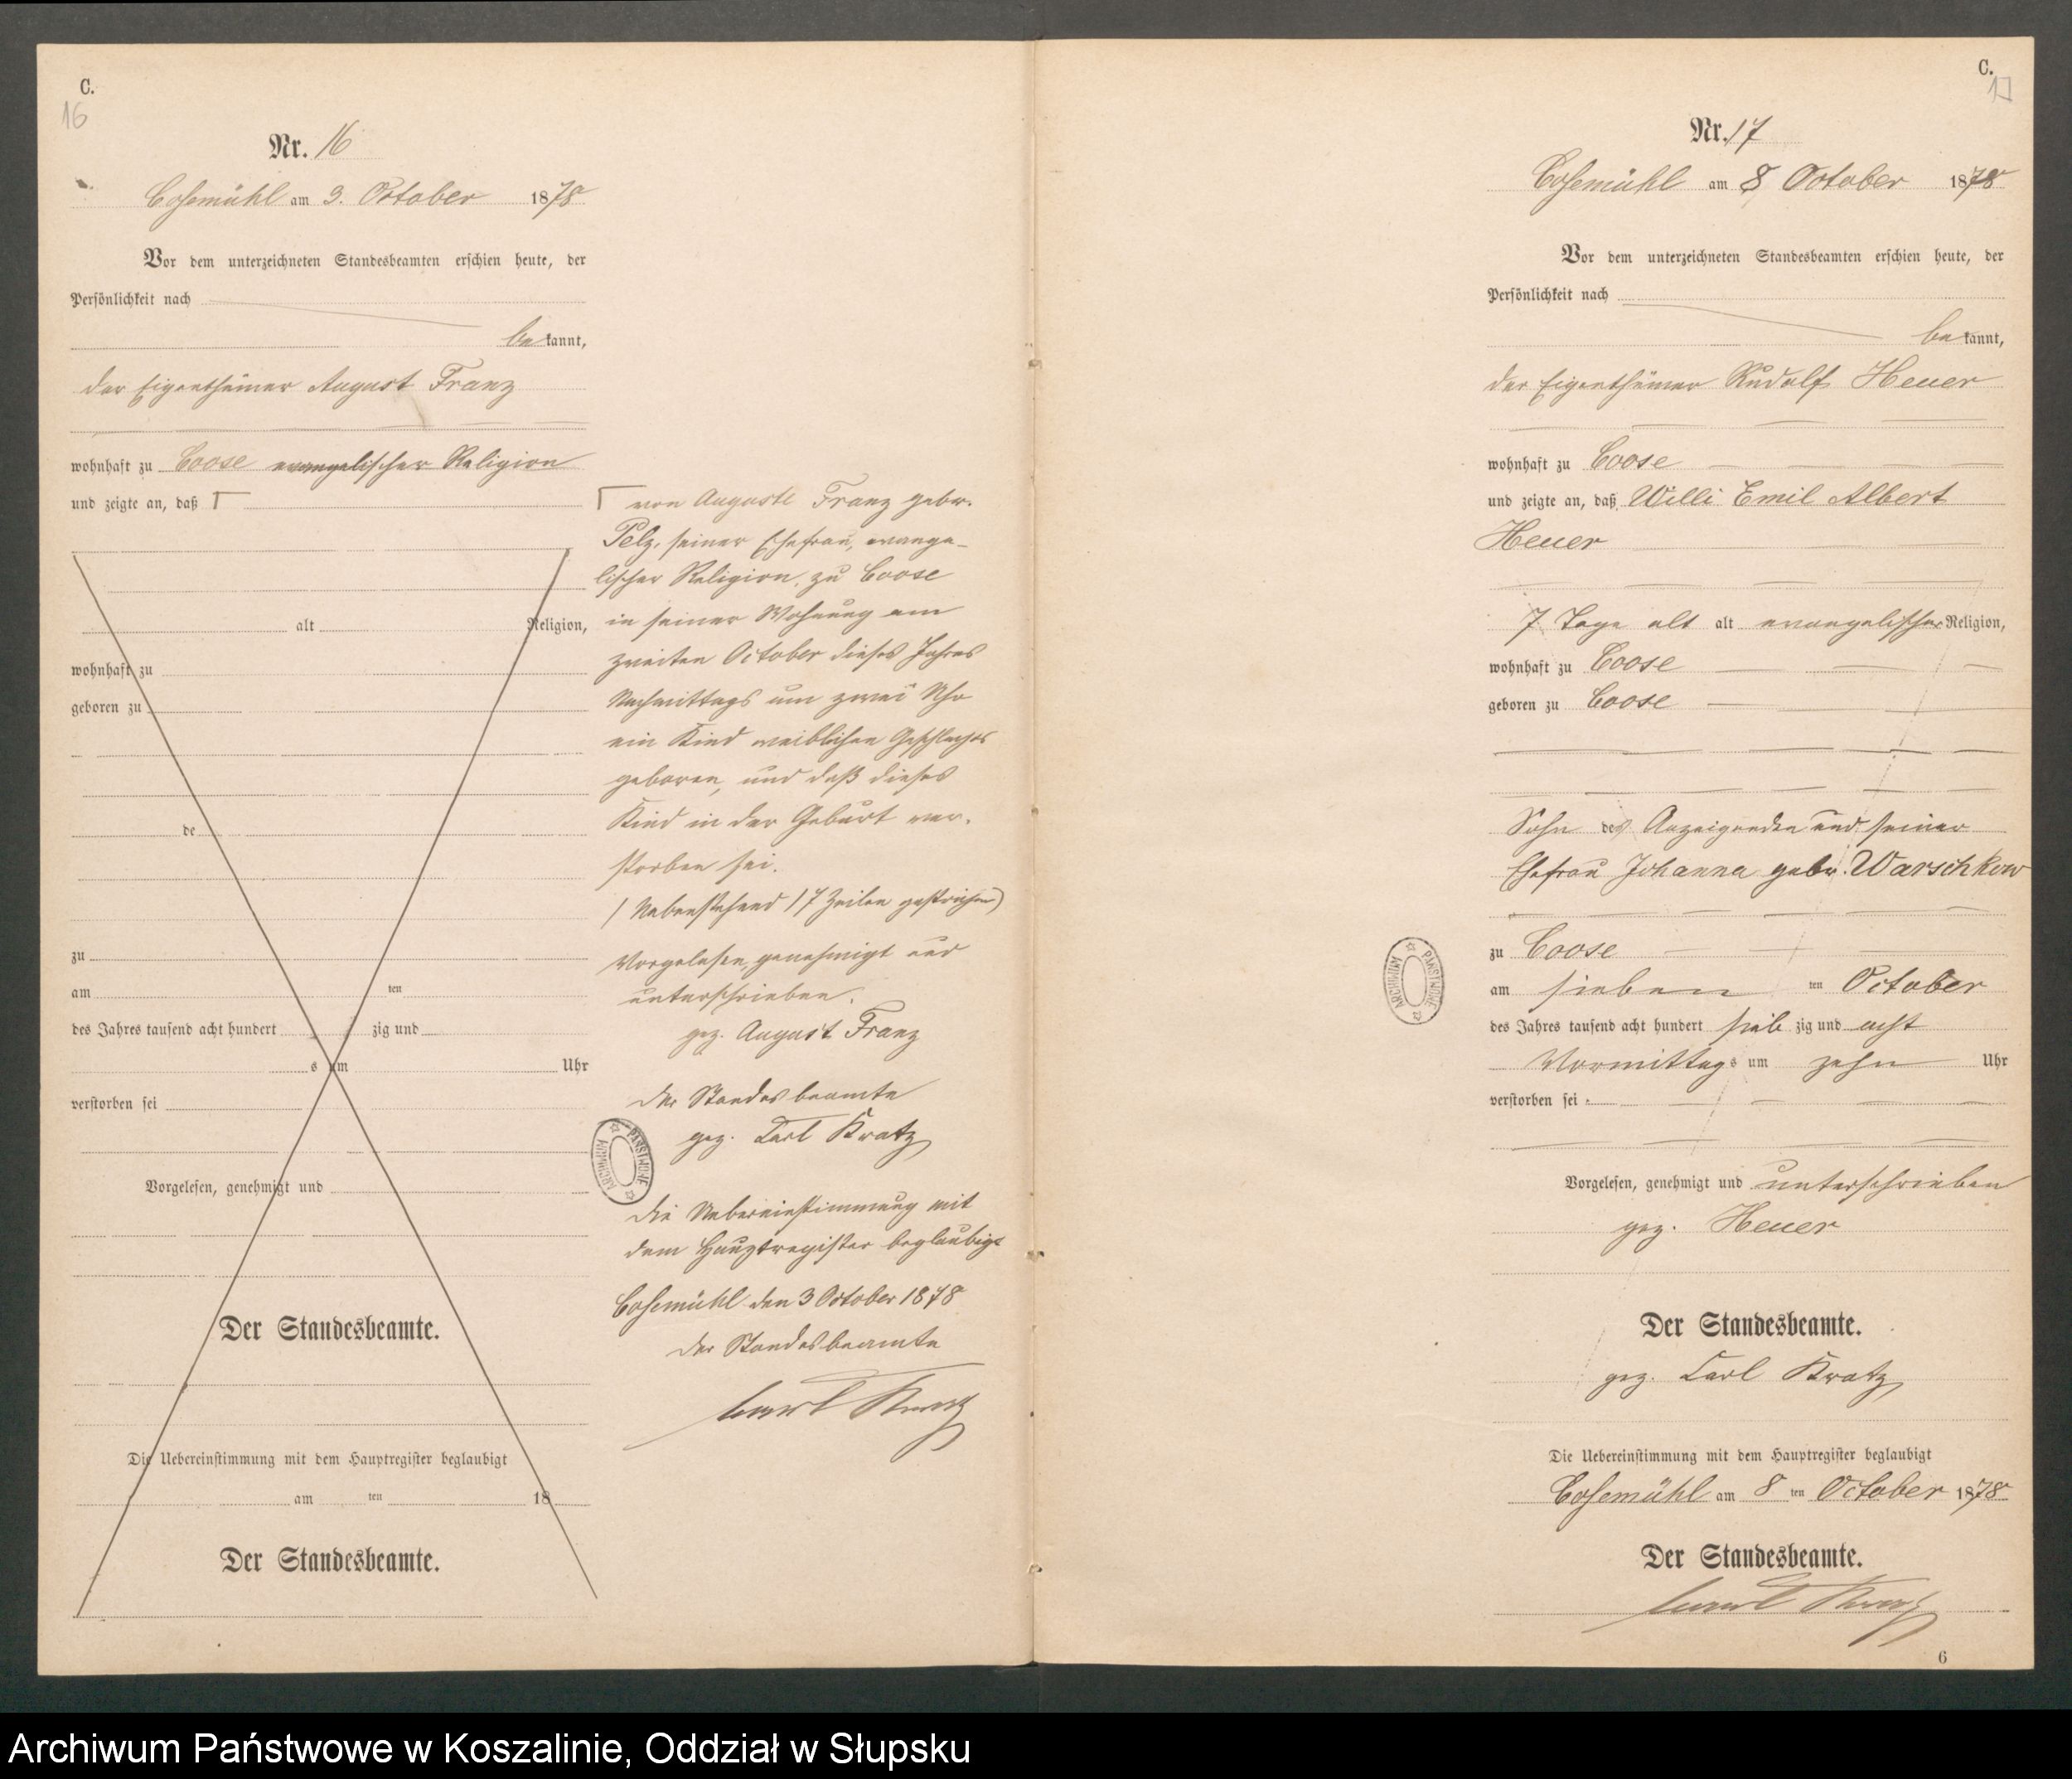 C.
16
Nr. 16
Cosemühl am 3. October 1878
Vor dem unterzeichneten Standesbeamten erschien heute, der
Persönlichkeit nach
bekannt,
der Eigenthümer August Franz
wohnhaft zu Coose evangelischer Religion
und zeigte an, daß Γ
alt Religion,
wohnhaft zu
geboren zu
de
zu
am ten
des Jahres tausend acht hundert zig und
s um Uhr
verstorben sei
Vorgelesen, genehmigt und
Der Standesbeamte.
Die Uebereinstimmung mit dem Hauptregister beglaubigt
am ten 18
Der Standesbeamte.
Γ von Auguste Franz gebor.
Pelz, seiner Ehefrau, evange-
lischer Religion, zu Coose
in seiner Wohnung am
zweiten October dieses Jahres
Nachmittags um zwei Uhr
ein Kind weiblichen Geschlechts
geboren, und daß dieses
Kind in der Geburt ver-
storben sei.
/ Nebenstehend 17 Zeilen gestrichen)
Vorgelesen, genehmigt und
unterschrieben.
gez. August Franz
Der Standesbeamte
gez. Carl Kratz
ARCHIWUM PAŃSTWOWE
Die Uebereinstimmung mit
dem Hauptregister beglaubigt
Cosemühl den 3 October 1878
Der Standesbeamte
Carl Kratz
C.
17
Nr. 17
Cosemühl am 8 October 1878
Vor dem unterzeichneten Standesbeamten erschien heute, der
Persönlichkeit nach
bekannt,
der Eigenthümer Rudolf Heuer
wohnhaft zu Coose
und zeigte an, daß Willi Emil Albert
Heuer
7 Tage alt alt evangelischer Religion,
wohnhaft zu Coose
geboren zu Coose
Sohn des Anzeigenden und seiner
Ehefrau Johanna gebor. Warschkow
zu Coose
am sieben ten October
des Jahres tausend acht hundert sieb zig und acht
Vormittags um zehn Uhr
verstorben sei
ARCHIWUM PAŃSTWOWE
Vorgelesen, genehmigt und unterschrieben
gez. Heuer
Der Standesbeamte.
gez. Carl Kratz
Die Uebereinstimmung mit dem Hauptregister beglaubigt
Cosemühl am 8 ten October 1878
Der Standesbeamte.
Carl Kratz
6
Archiwum Państwowe w Koszalinie, Oddział w Słupsku